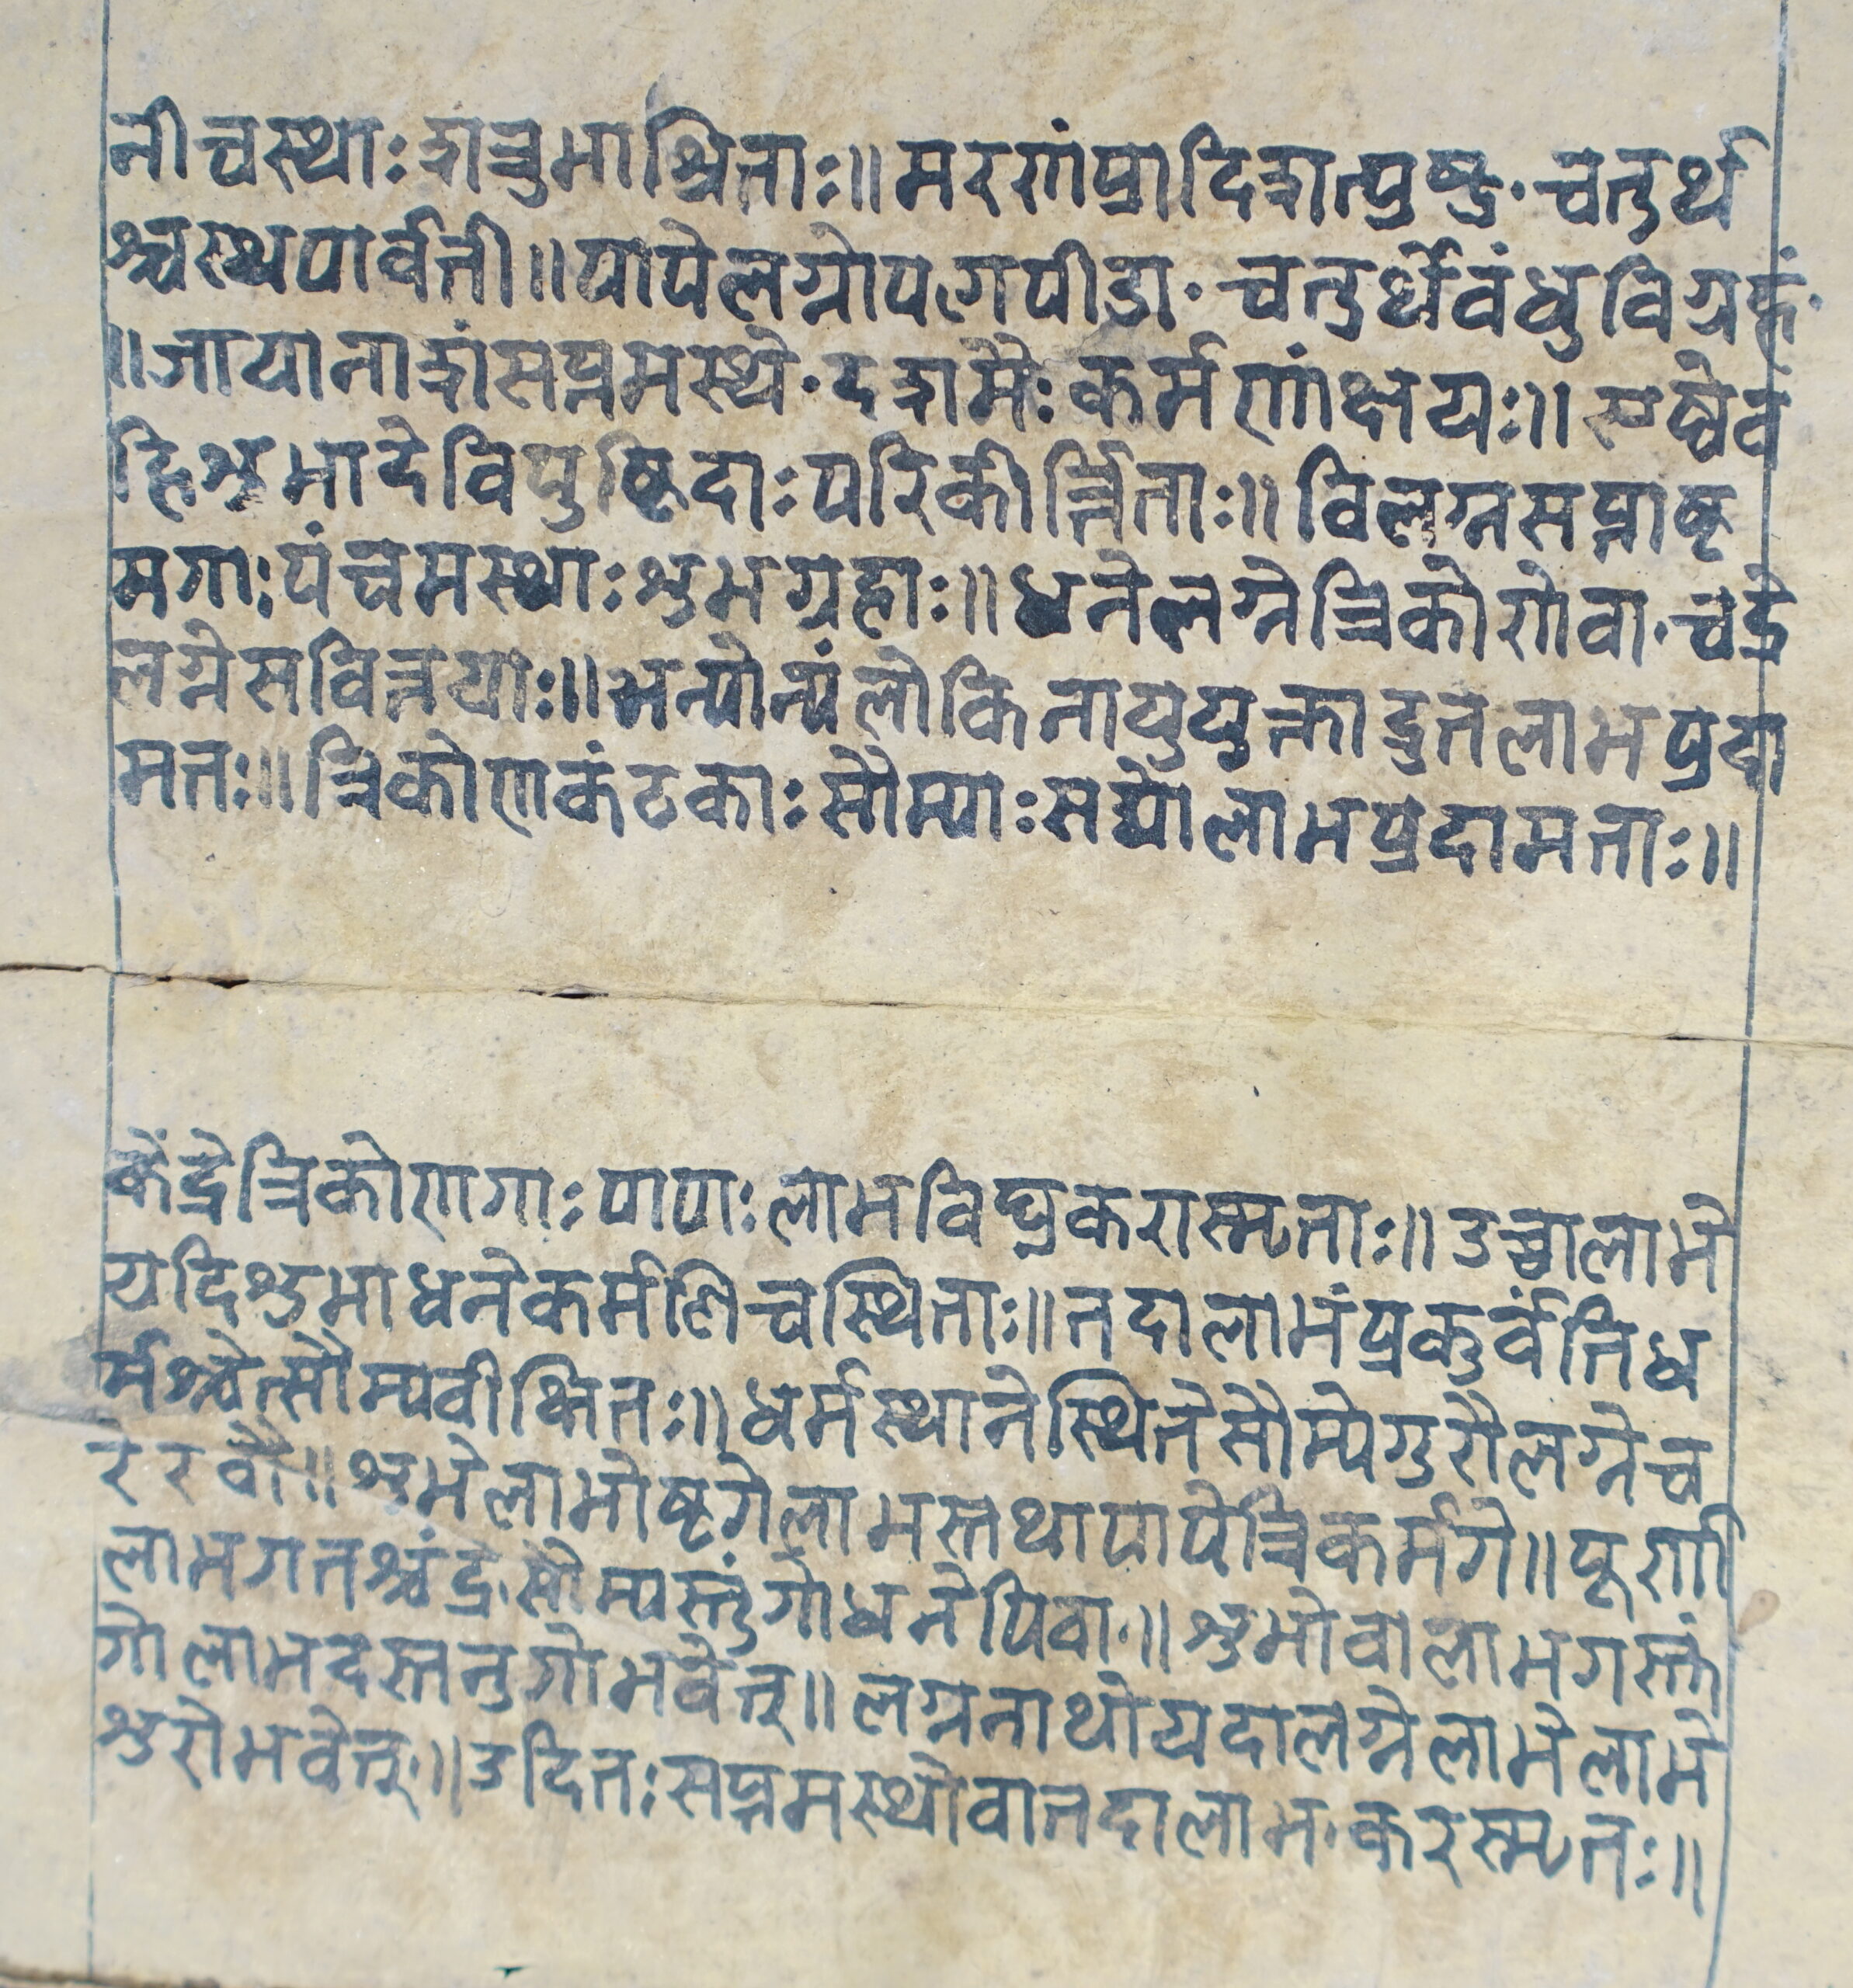 नीचस्थाः शत्रुमाश्रिताः॥ मरणंप्रादिशत्पुष्ट· चतुर्थ
श्चस्थपार्वती॥ पापेलग्नोपगेपीडा· चतुर्थेवंधुविग्रहं·
॥जायानाशंसप्तमस्थे· दशमैः कर्मणांक्षयः॥ एष्वेव
हिशुभादेविपुष्टिदाः परिकीर्त्तिताः॥ विलग्नसप्ताष्ट
मगाः पंचमस्थाः शुभग्रहाः॥ धनेलग्नेत्रिकोणेवा· चद्रे
लग्नेसवित्तयाः॥ अन्योन्यंलोकिनायुयुक्ताद्रुतलाभप्रदा
मतः॥ त्रिकोणकंठकाः सौम्याः सद्योलाभप्रदामताः॥
केंद्रेत्रिकोणगाः पापाः लाभविघ्नकरास्मृताः॥ उच्चालाभे
यदिशुभाधनेकर्मणिचस्थिताः॥ तदालाभंप्रकुर्वंतिध
र्मश्चेत्सौम्यवीक्षितः॥ धर्मस्थानेस्थितेसौम्येगुरौलग्नेच
रेरवौ॥ शुभेलाभोष्टगेलाभस्तथापापेत्रिकर्मगे॥ पूर्णा
लाभगतश्चंद्रःसौम्यस्तुंगोधनेपिवा·॥ शुभोवालाभगस्तं
गोलाभदस्तनुगोभवेत्॥ लग्ननाथोयदालग्नेलाभेलाभे
शुरोभवेत्·॥ उदितः सप्तमस्थोवातदालाभ·करस्मृतः॥